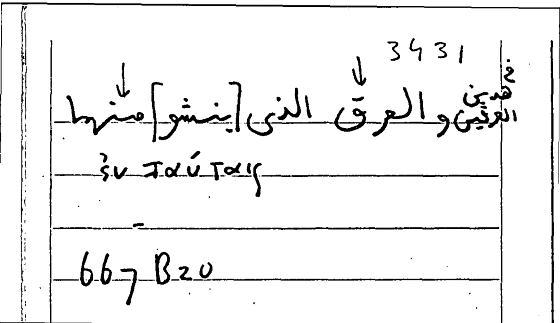 3431
في هذين العرقين والعرق الذى [ينشو] منهما
ἐν ταύταις
667 B20